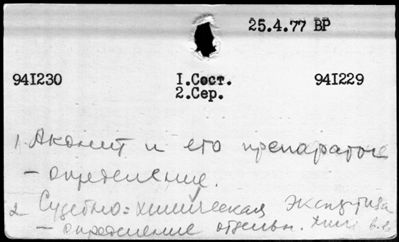 25.4.77 ВР
941230 1.Сост. 941229
2.Сер.
1. Аконит и его препараты
– определение.
2. Судебно-химическая экспертиза
– определение отдельн. хим. в-в